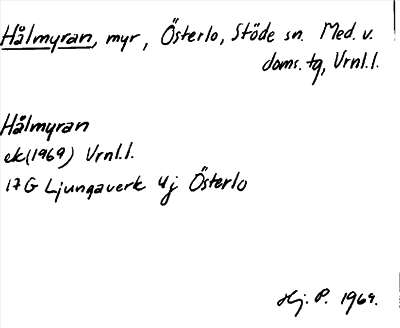 Hålmyran, myr, Österlo, Stöde sn. Med. v.
doms. tg, Vrnl.l.
Hålmyran
ek(1969) Vrnl.l.
17G Ljungaverk 4j Österlo
Hj. P. 1969.